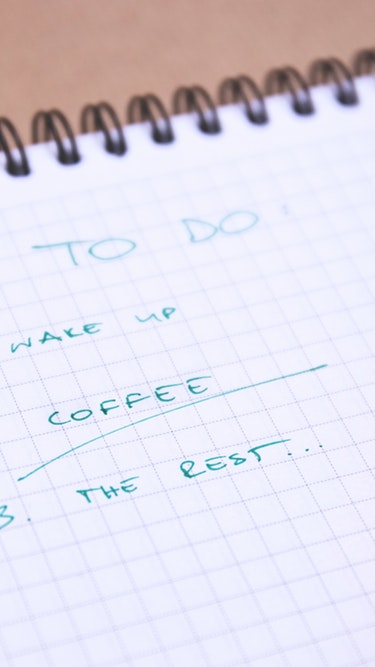 TO DO:
WAKE UP
COFFEE
3. THE REST...